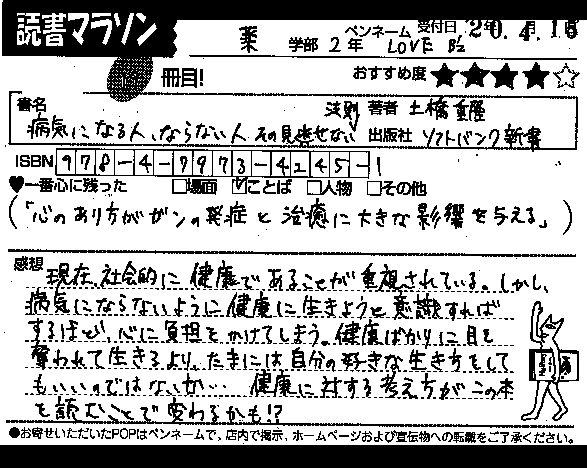 読書マラソン
薬 学部 2年 ペンネーム LOVE B'z 受付日 20.4.16
冊目!
おすすめ度 ★★★★☆
書名 病気になる人、ならない人 その見逃せない法則 著者 土橋重隆
出版社 ソフトバンク新書
ISBN 978-4-7973-4245-1
♥一番心に残った □場面 ☑ことば □人物 □その他
(「心のあり方がガンの発症と治癒に大きな影響を与える」)
感想 現在、社会的に健康であることが重視されている。しかし、
病気にならないように健康に生きようと意識すれば
するほど、心に負担をかけてしまう。健康ばかりに目を
奪われて生きるより、たまには自分の好きな生き方をして
もいいのではないか… 健康に対する考え方がこの本
を読むことで変わるかも!?
●お寄せいただいたPOPはペンネームで、店内で掲示、ホームページおよび宣伝物への転載をご了承ください。